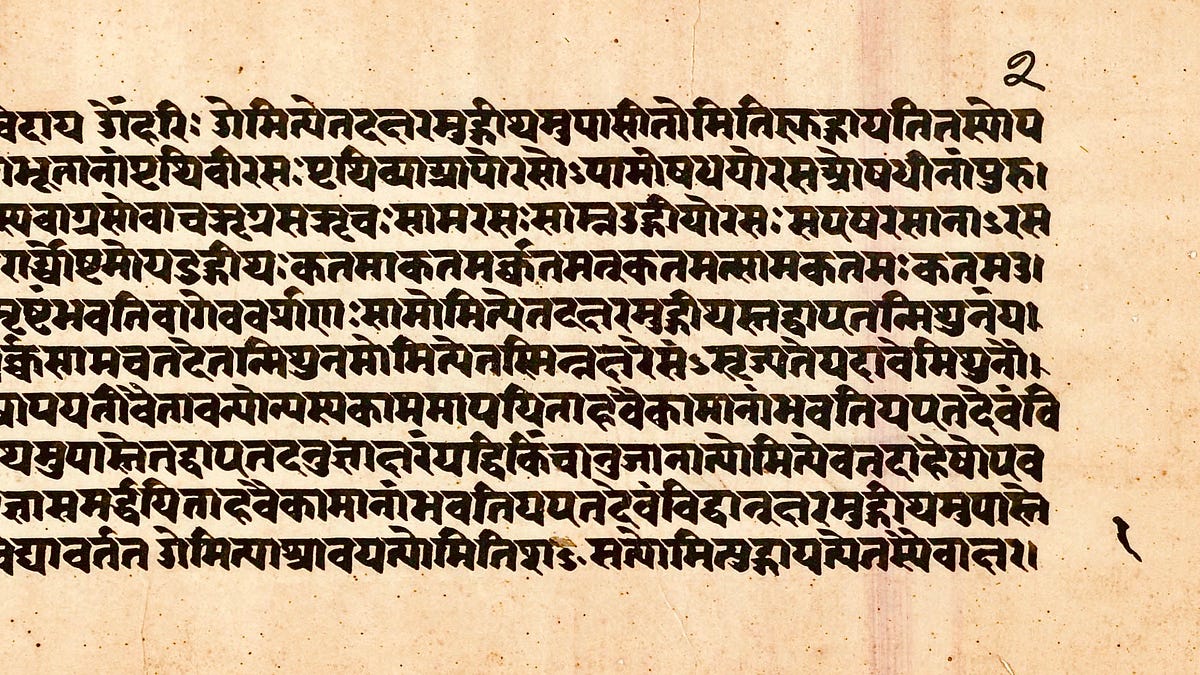 २
वेदाय ॐहरिः ओमित्येतदक्षरमुद्गीथमुपासीतोमितिह्युद्गायतितस्योप
भूतानांपृथिवीरसः पृथिव्याआपोरसोऽपामोषधयोरसओषधीनांपुरु।
स्यवाग्रसोवाचऋग्रसऋचःसामरसःसाम्नउद्गीथोरसः सएषरसानाऽरस
रार्द्ध्योष्टमोयउद्गीथःकतमाकतमर्क्कतमत्कतमत्सामकतमःकतमउ।
मृष्टंभवतिवागेवर्क्प्राणःसामोमित्येतदक्षरमुद्गीथस्तद्वाएतन्मिथुनंय।
र्क्चसामचतदेतन्मिथुनमोमित्येतस्मिन्नक्षरेसंऽसृज्यतेयदावैमिथुनौ।
आपयतोवैतावन्योन्यस्यकाममापयिताहवैकामानांभवतियएतदेवंवि
थमुपास्तेतद्वाएतदनुज्ञाक्षरंयद्धिकिंचानुजानात्योमित्येवतदाहैषोएव
ज्ञासमर्द्धयिताहवैकामानांभवतियएतदेवंविद्वानक्षरमुद्गीथमुपास्ते
विद्यावर्तत ओमित्याश्रावयत्योमितिशऽसत्योमित्युद्गायत्येतस्यैवाक्षर।
१